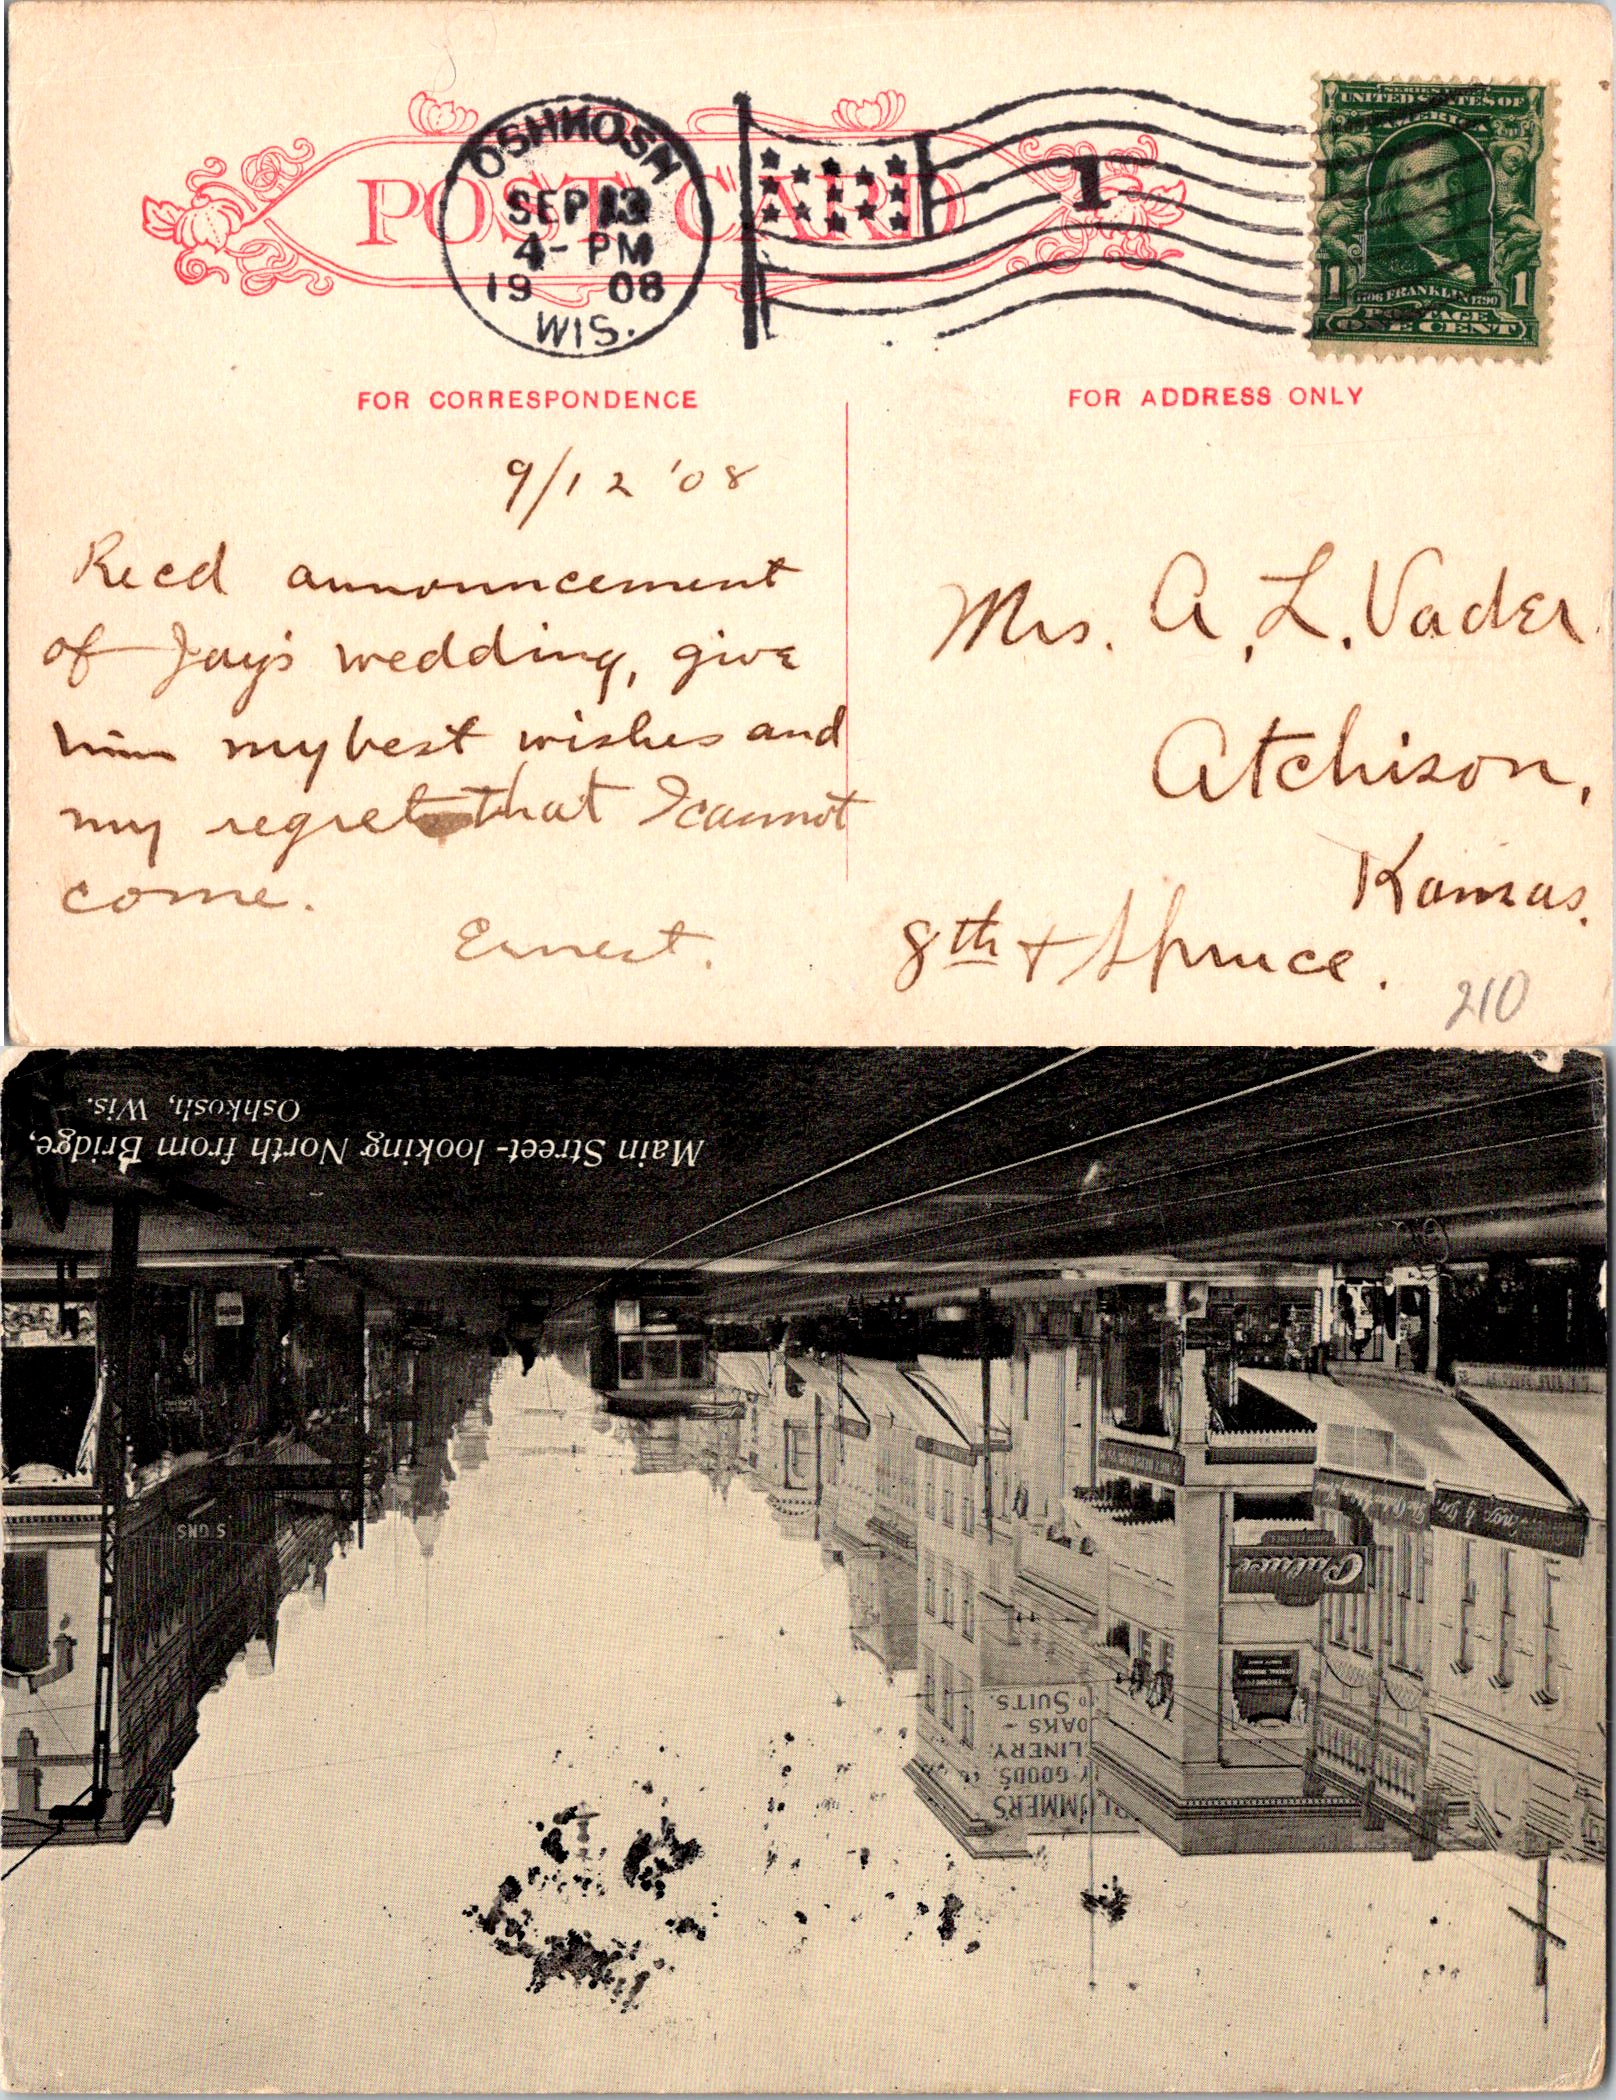 POST CARD
OSHKOSH
SEP 13
4- PM
19 08
WIS.
1
SERIES OF 1902
UNITED STATES OF
AMERICA
1706 FRANKLIN 1790
1 1
POSTAGE
ONE CENT
FOR CORRESPONDENCE
FOR ADDRESS ONLY
9/12 '08
Recd announcement
of Jay's wedding, give
him my best wishes and
my regret that I cannot
come.
Ernest.
Mrs. A. L. Vader
Atchison,
Kansas.
8th + Spruce.
210
Main Street- looking North from Bridge,
Oshkosh, Wis.
S GNS
UMMERS
Y GOODS,
LINERY,
OAKS -
SUITS.